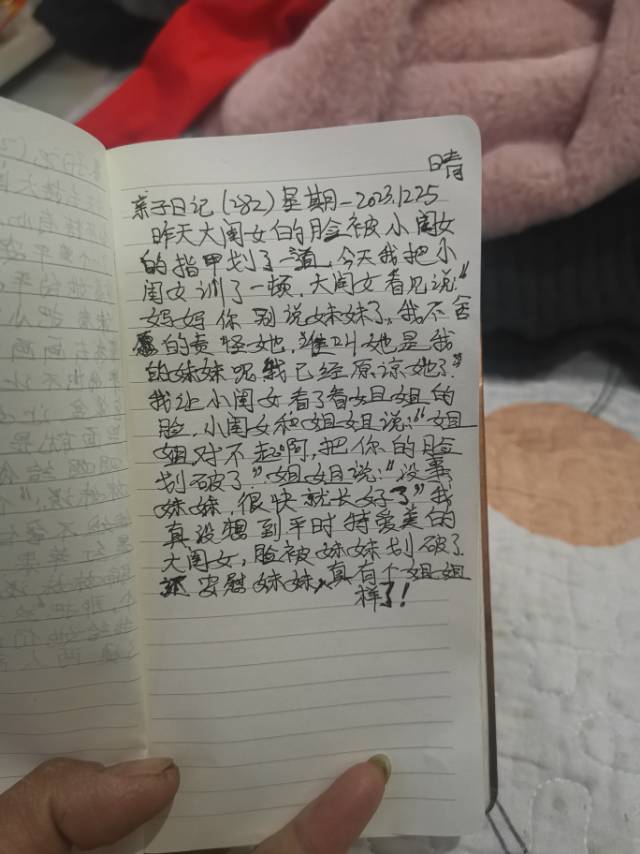 晴
亲子日记(282)星期一2023.12.25
昨天大闺女的脸被小闺女
的指甲划了一道,今天我把小
闺女训了一顿,大闺女看见说:“
妈妈你别说妹妹了,我不舍
的责怪她,谁叫她是我
的妹妹呢,我已经原谅她了”
我让小闺女看了看姐姐的
脸,小闺女和姐姐说:“姐
姐对不起啊,把你的脸
划破了”姐姐说:“没事
妹妹,很快就长好了”我
真没想到平时特爱美的
大闺女,脸被妹妹划破了
还安慰妹妹,真有个姐姐
样了!